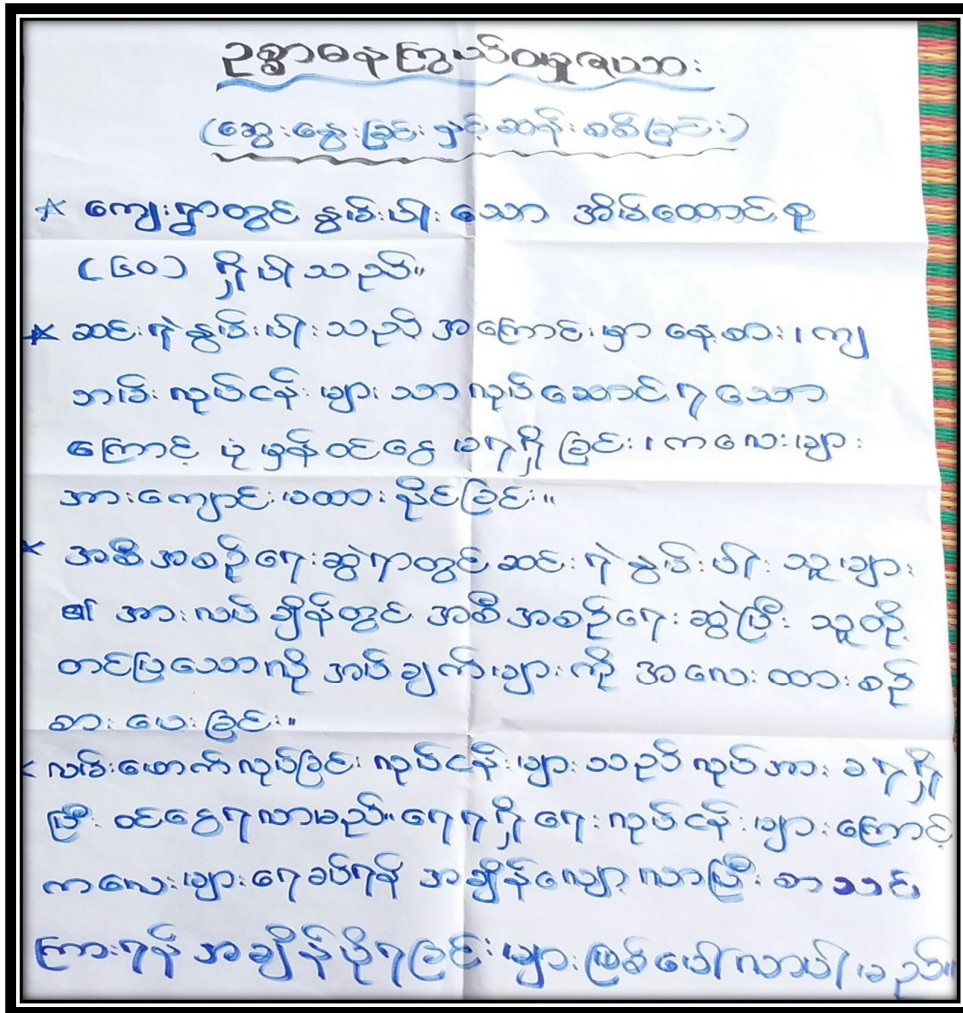 ဥစ္စာဓနကြွယ်ဝမှုဇယား
(ဆွေးနွေးခြင်းနှင့်ဆန်းစစ်ခြင်း)
* ကျေးရွာတွင် နွမ်းပါးသော အိမ်ထောင်စု
(၆၀) ရှိပါသည်။
* ဆင်းရဲနွမ်းပါးသည့် အကြောင်းမှာ နေ့စား၊ ကျ
ဘမ်းလုပ်ငန်းများသာလုပ်ဆောင်ရသော
ကြောင့် ပုံမှန်ဝင်ငွေ မရရှိခြင်း၊ ကလေးများ
အားကျောင်းမထားနိုင်ခြင်း။
* အစီအစဉ်ရေးဆွဲရာတွင် ဆင်းရဲနွမ်းပါးသူများ
၏ အားလပ်ချိန်တွင် အစီအစဉ်ရေးဆွဲပြီး သူတို့
တင်ပြသောလိုအပ်ချက်များကို အလေးထားစဉ်
စားပေးခြင်း။
* လမ်းဖောက်လုပ်ခြင်းလုပ်ငန်းများသည် လုပ်အားခရရှိ
ပြီး ဝင်ငွေရလာမည်။ ရေရရှိရေးလုပ်ငန်းများကြောင့်
ကလေးများရေခပ်ရန် အချိန်လျော့လာပြီး စာသင်
ကြားရန် အချိန်ပိုရခြင်းများဖြစ်ပေါ်လာပါမည်။